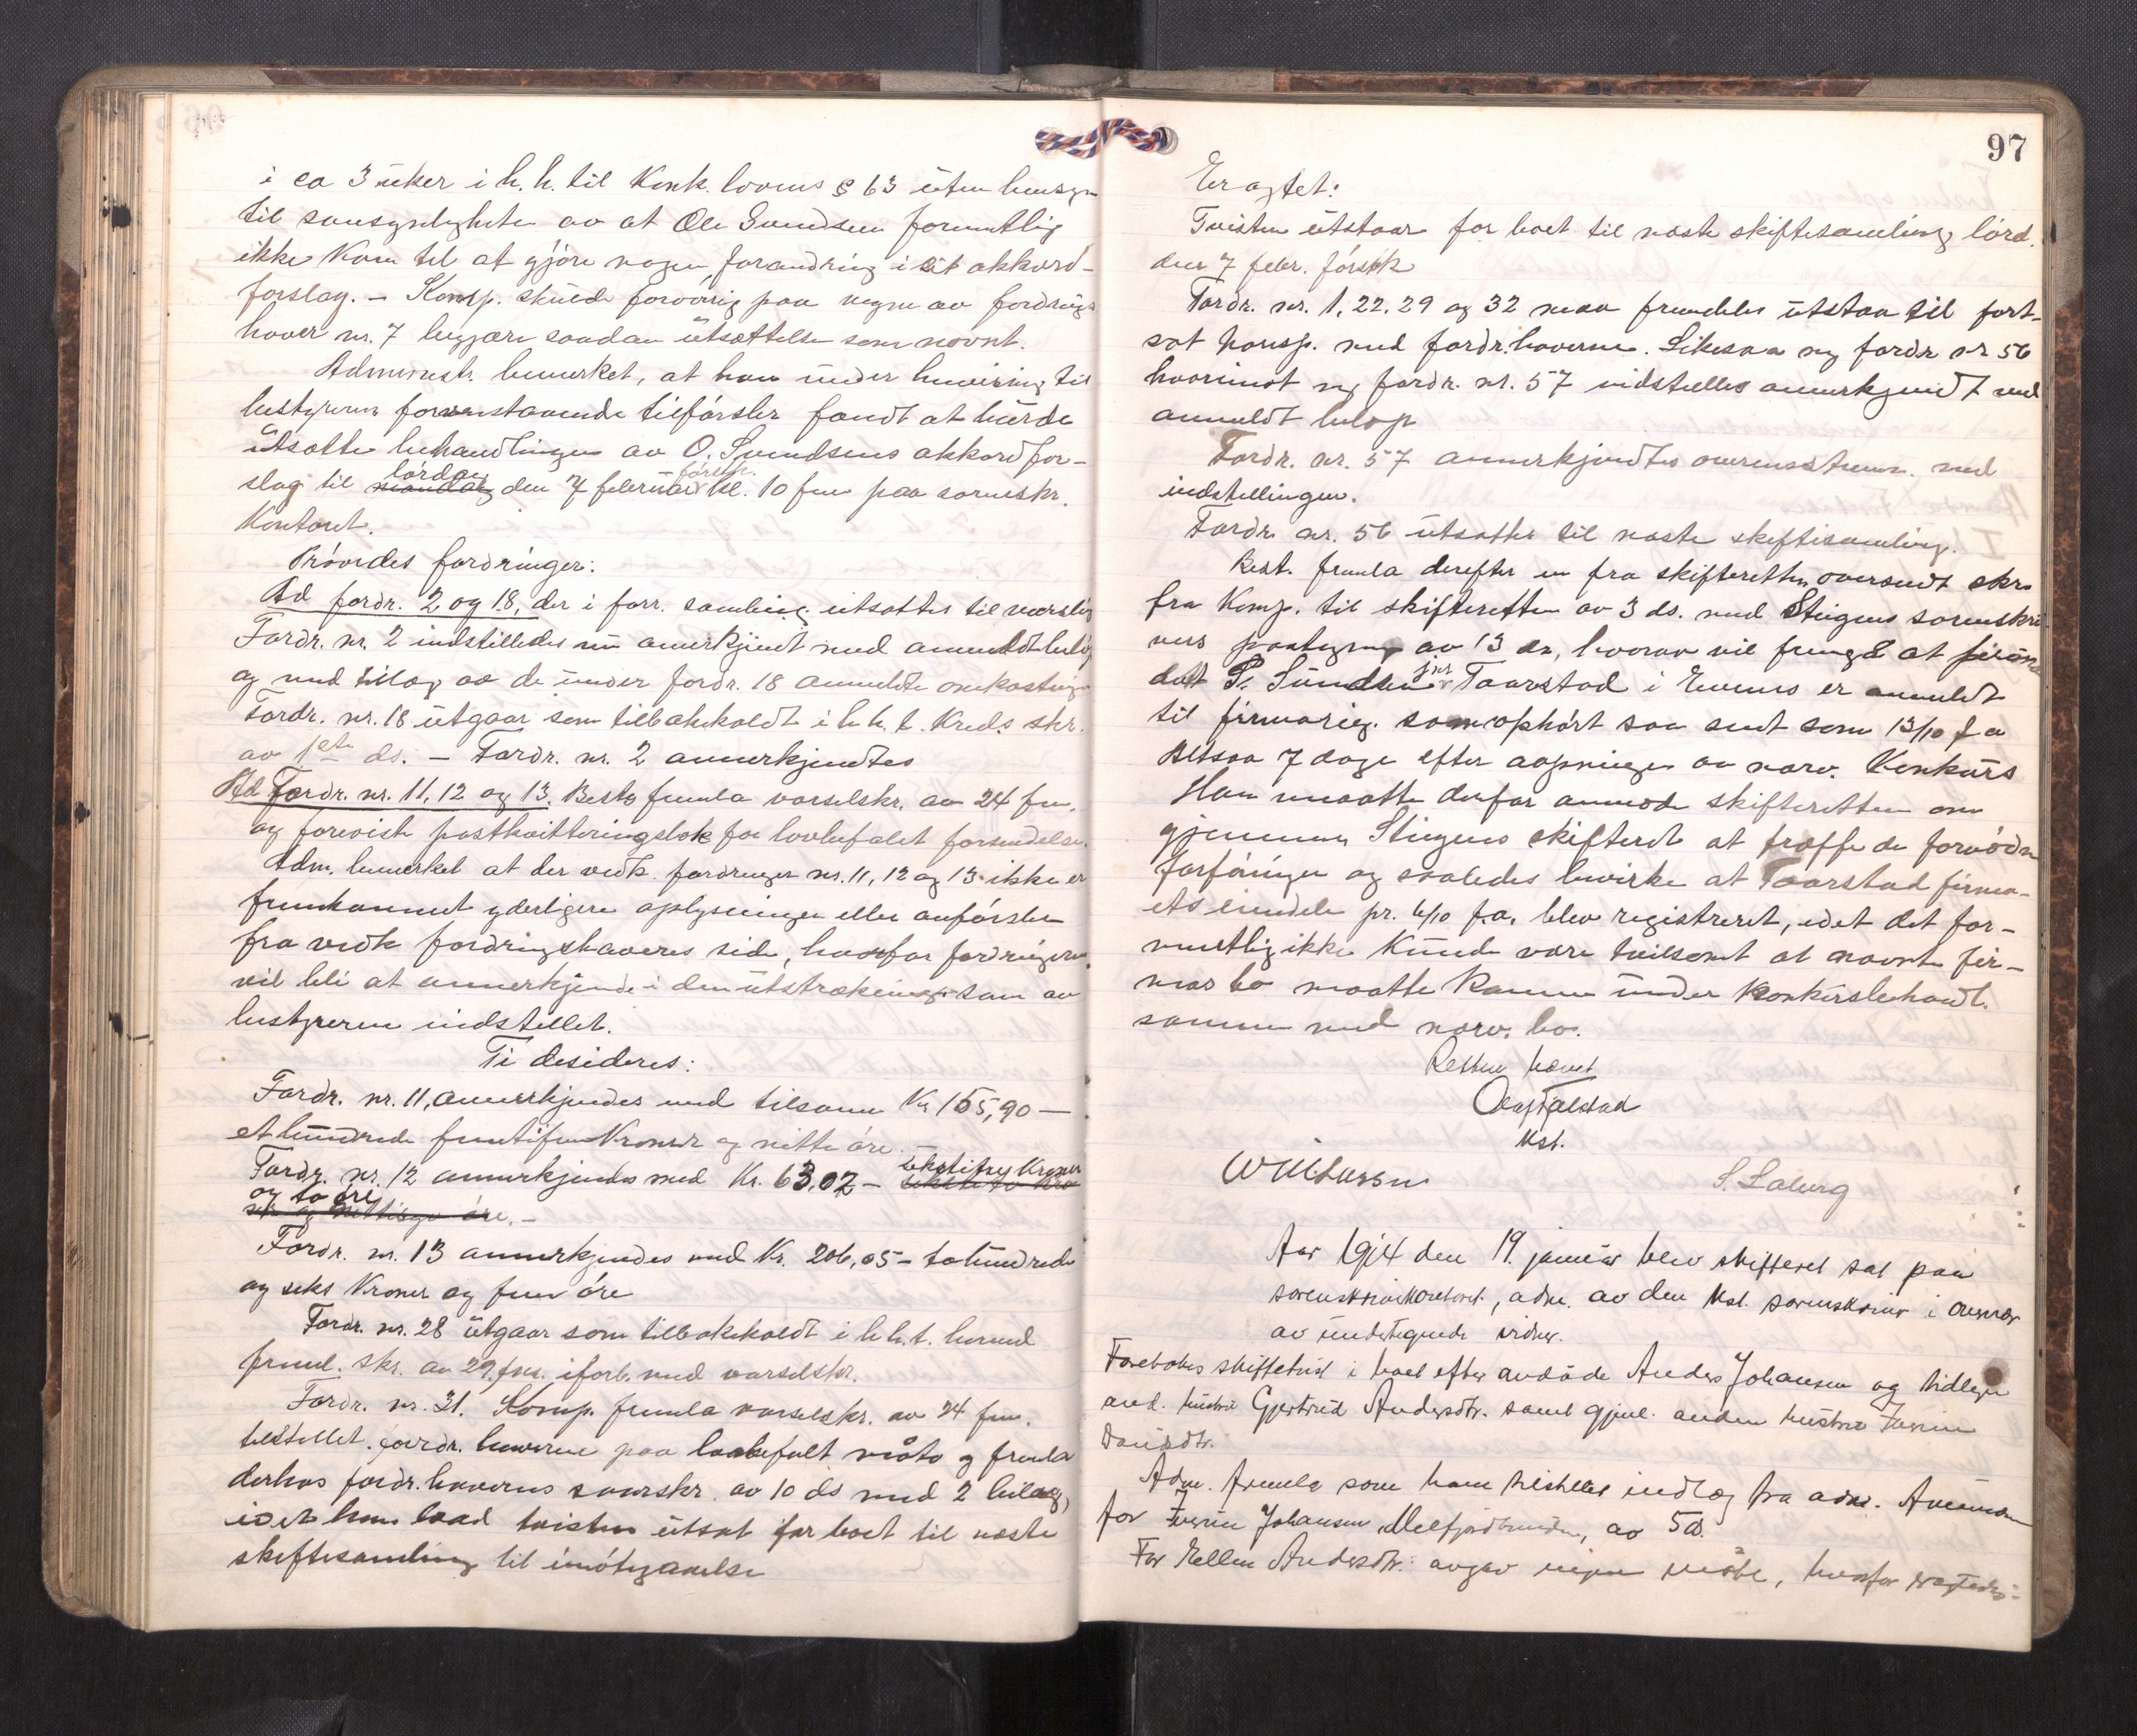 i ca 3 uker i h. h. til Konk. lovens § 63 uten hensyn
til sansynligheten av at Ole Svendsen formentlig
ikke kom til at gjøre nogen forandring i sit akkord-
forslag. - Komp. skulde forøvrig paa vegne av fordrings
haver nr. 7 begjære saadan utsættelse som nævnt.
Administr. bemerket, at han under henvisning til
bestyrerens foranstaaende tilførsler fandt at burde
utsætte behandlingen av O. Svendsens akkordfor-
slag til mandag lørdag den 7 februar førstk. kl. 10 fm paa sorenskr.
Kontoret.
Prøvedes fordringer:
Ad fordr. 2 og 18, der i forr. samling utsattes til
Fordr. nr. 2 indstilledes nu anerkjendt med anmeldt beløp
og med tillæg av de under fordr. 18 anmeldte omkostninger
Fordr. nr. 18 utgaar som tilbakekaldt i h. h. t. Kreds skr.
av 1ste ds. - Fordr. nr. 2 anerkjendtes
Ad Fordr. nr. 11, 12 og 13. Best. fremla varselskr. av 24 fm.
og foreviste postkvitteringsbok for lovbefalet forsendelse.
Adm. bemerket at der vedk. fordringer nr. 11, 12 og 13 ikke er
fremkommet yderligere oplysninger eller anførsler
fra vedk fordringshaveres side, hvorfor fordringerne
vil bli at anerkjende i den utstrækning som av
bestyreren indstillet.
Ti desideres:
Fordr. nr. 11, anerkjendes med tilsamm Kr 155,90 —
et hundrede femtifem Kroner og nitti øre.
Fordr. nr. 12 anerkjendes med Kr. 63,02 - sekstitre Kroner
og to øre
Fordr. nr. 13 anerkjendes med Kr. 206,05 - tohundrede
og seks Kroner og fem øre
Fordr. nr. 28 utgaar som tilbakekaldt i h. h. t. hermed
freml. skr. av 29. fm. i forb. med varselskr.
Fordr. nr. 31. Komp. fremla varselskr. av 24 fm.
tilstillet fordr. haverne paa lovbefalt måte og fremla
derhos fordr. haverens svarskr. av 10 ds med 2 bilag,
idet han bad tvisten utsat for boet til næste
skiftesamling til imøtegaaelse
97
Eragtet:
Tvisten utstaar for boet til næste skiftesamling lørd.
den 7 febr. førstk
Fordr. nr. 1, 22, 29 og 32 maa fremdeles utstaa til fort-
sat konsp. med fordr. haverne. Likesaa ny fordr nr 56
hvorimot ny fordr. nr. 57 indstilles anerkjendt med
anmeldt beløp
Fordr. nr. 57 anerkjendtes overensstemm. med
indstillingen.
Fordr. nr. 56 utsattes til næste skiftesamling.
Best. fremla derefter en fra skifteretten oversendt skr.
fra Komp. til skifteretten av 3 ds. med Steigens sorenskri
vers paategning av 13 ds, hvorav vil fremgaa at firma
Svendsen jnr Taarstad i Evenes er anmeldt
til firmareg. som ophørt saa sent som 13/10 f a
altsaa 7 dage efter aapningen av nærv. Konkurs
Han maatte derfor anmode skifteretten om
gjennem Steigens skifteret at træffe de fornødne
forføininger og saaledes bevirke at Taarstad firma-
ets eiendele pr. 6/10 f.a. blev registreret, idet det for-
mentlig ikke kunde være tvilsomt at nævnte fir-
mas bo maatte komme under konkursbehandl.
sammen med nærv. bo.
Retten hævet
Kst.
S. Soberg
Aar 1914 den 19. januar blev skifteret sat paa
sorenskriverkontoret, adm. av den kst. sorenskriver i overvær
av undertegnede vidner.
Foretokes skiftetvist i boet efter avdøde Anders Johansen og tidligere
avd. hustru Gjertrud Andersdtr. samt gjenl. anden hustru
Danisdtr.
Adm. fremla som ham tilstillet indlæg fra adv.
for Johansen, Melfjordbunden, av 5 ds.
For Ellen Andersdtr. avgav ingen møte, hvorfor eragtedes: